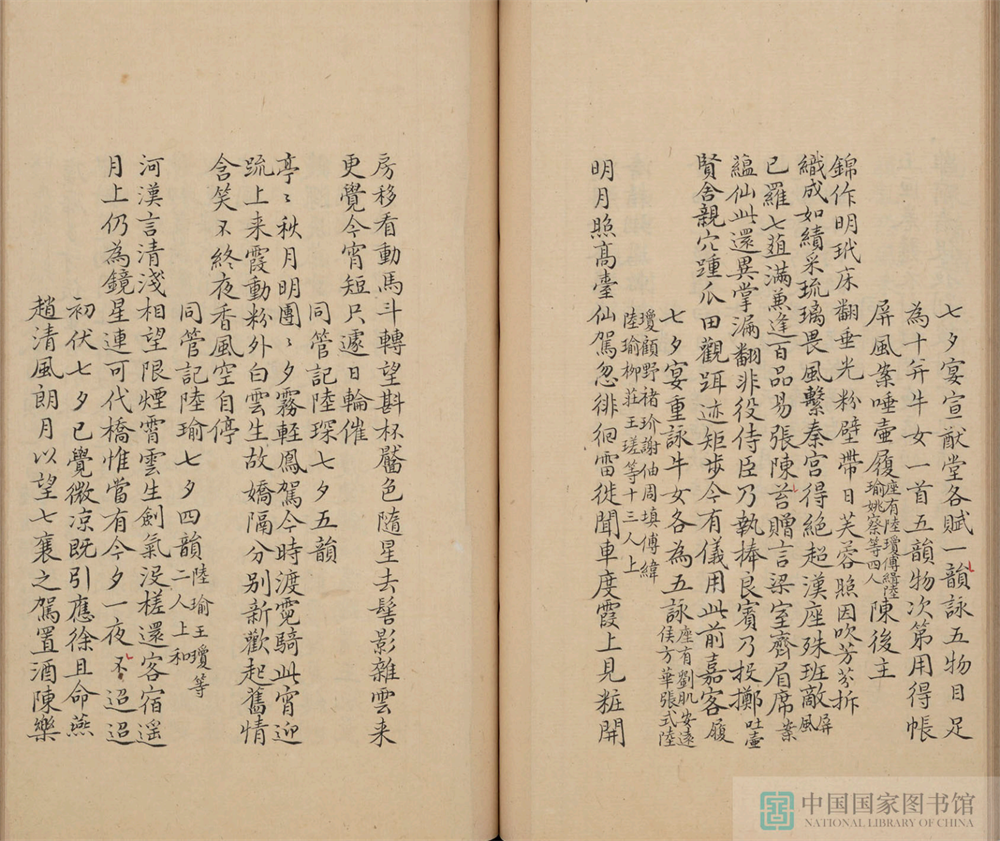 七夕宴宣猷堂各賦一韻詠五物自足
為十并牛女一首五韻物次第用得帳
屏風案唾壷履座有陸瓊傅縡陸瑜姚察等四人陳後主
錦作明玳床翻垂光粉壁帶日芙蓉照因吹芳芬拆
織成如績采琉璃畏風擊秦宮得絕超漢座殊班敵屏風
已羅七䔖滿兼逢百品易張陳荅贈言梁室齊眉席案
蘊仙此還異掌漏翻非役侍臣乃執捧良賓乃投擲吐壷
賢舍親穴踵瓜田觀跙迹矩步今有儀用此前嘉客履
七夕宴重詠牛女各為五詠座有劉肌安遠侯方華張式陸瓊顧野褚玠謝伷周塡傅緯陸瑜柳莊王瑳等十三人上
明月照髙臺仙駕忽徘徊雷徙聞車度霞上見粧開
房移看動馬斗轉望斟杯靨色隨星去髻影雜雲来
更覺今宵短只遽日輪催
同管記陸琛七夕五韻
亭〻秋月明團〻夕霧輕鳳駕今時渡霓騎此宵迎
疏上来霞動粉外白雲生故嬌隔分別新歡起舊情
含笑不終夜香風空自停
同管記陸瑜七夕四韻陸瑜王瓊等二人上和
河漢言清淺相望限煙霄雲生劍氣没槎還客宿遥
月上仍為鏡星連可代橋惟當有今夕一夜不迢迢
初伏七夕已覺微凉既引應徐且命燕
趙清風朗月以望七襄之駕置酒陳樂
中国国家图书馆
NATIONAL LIBRARY OF CHINA